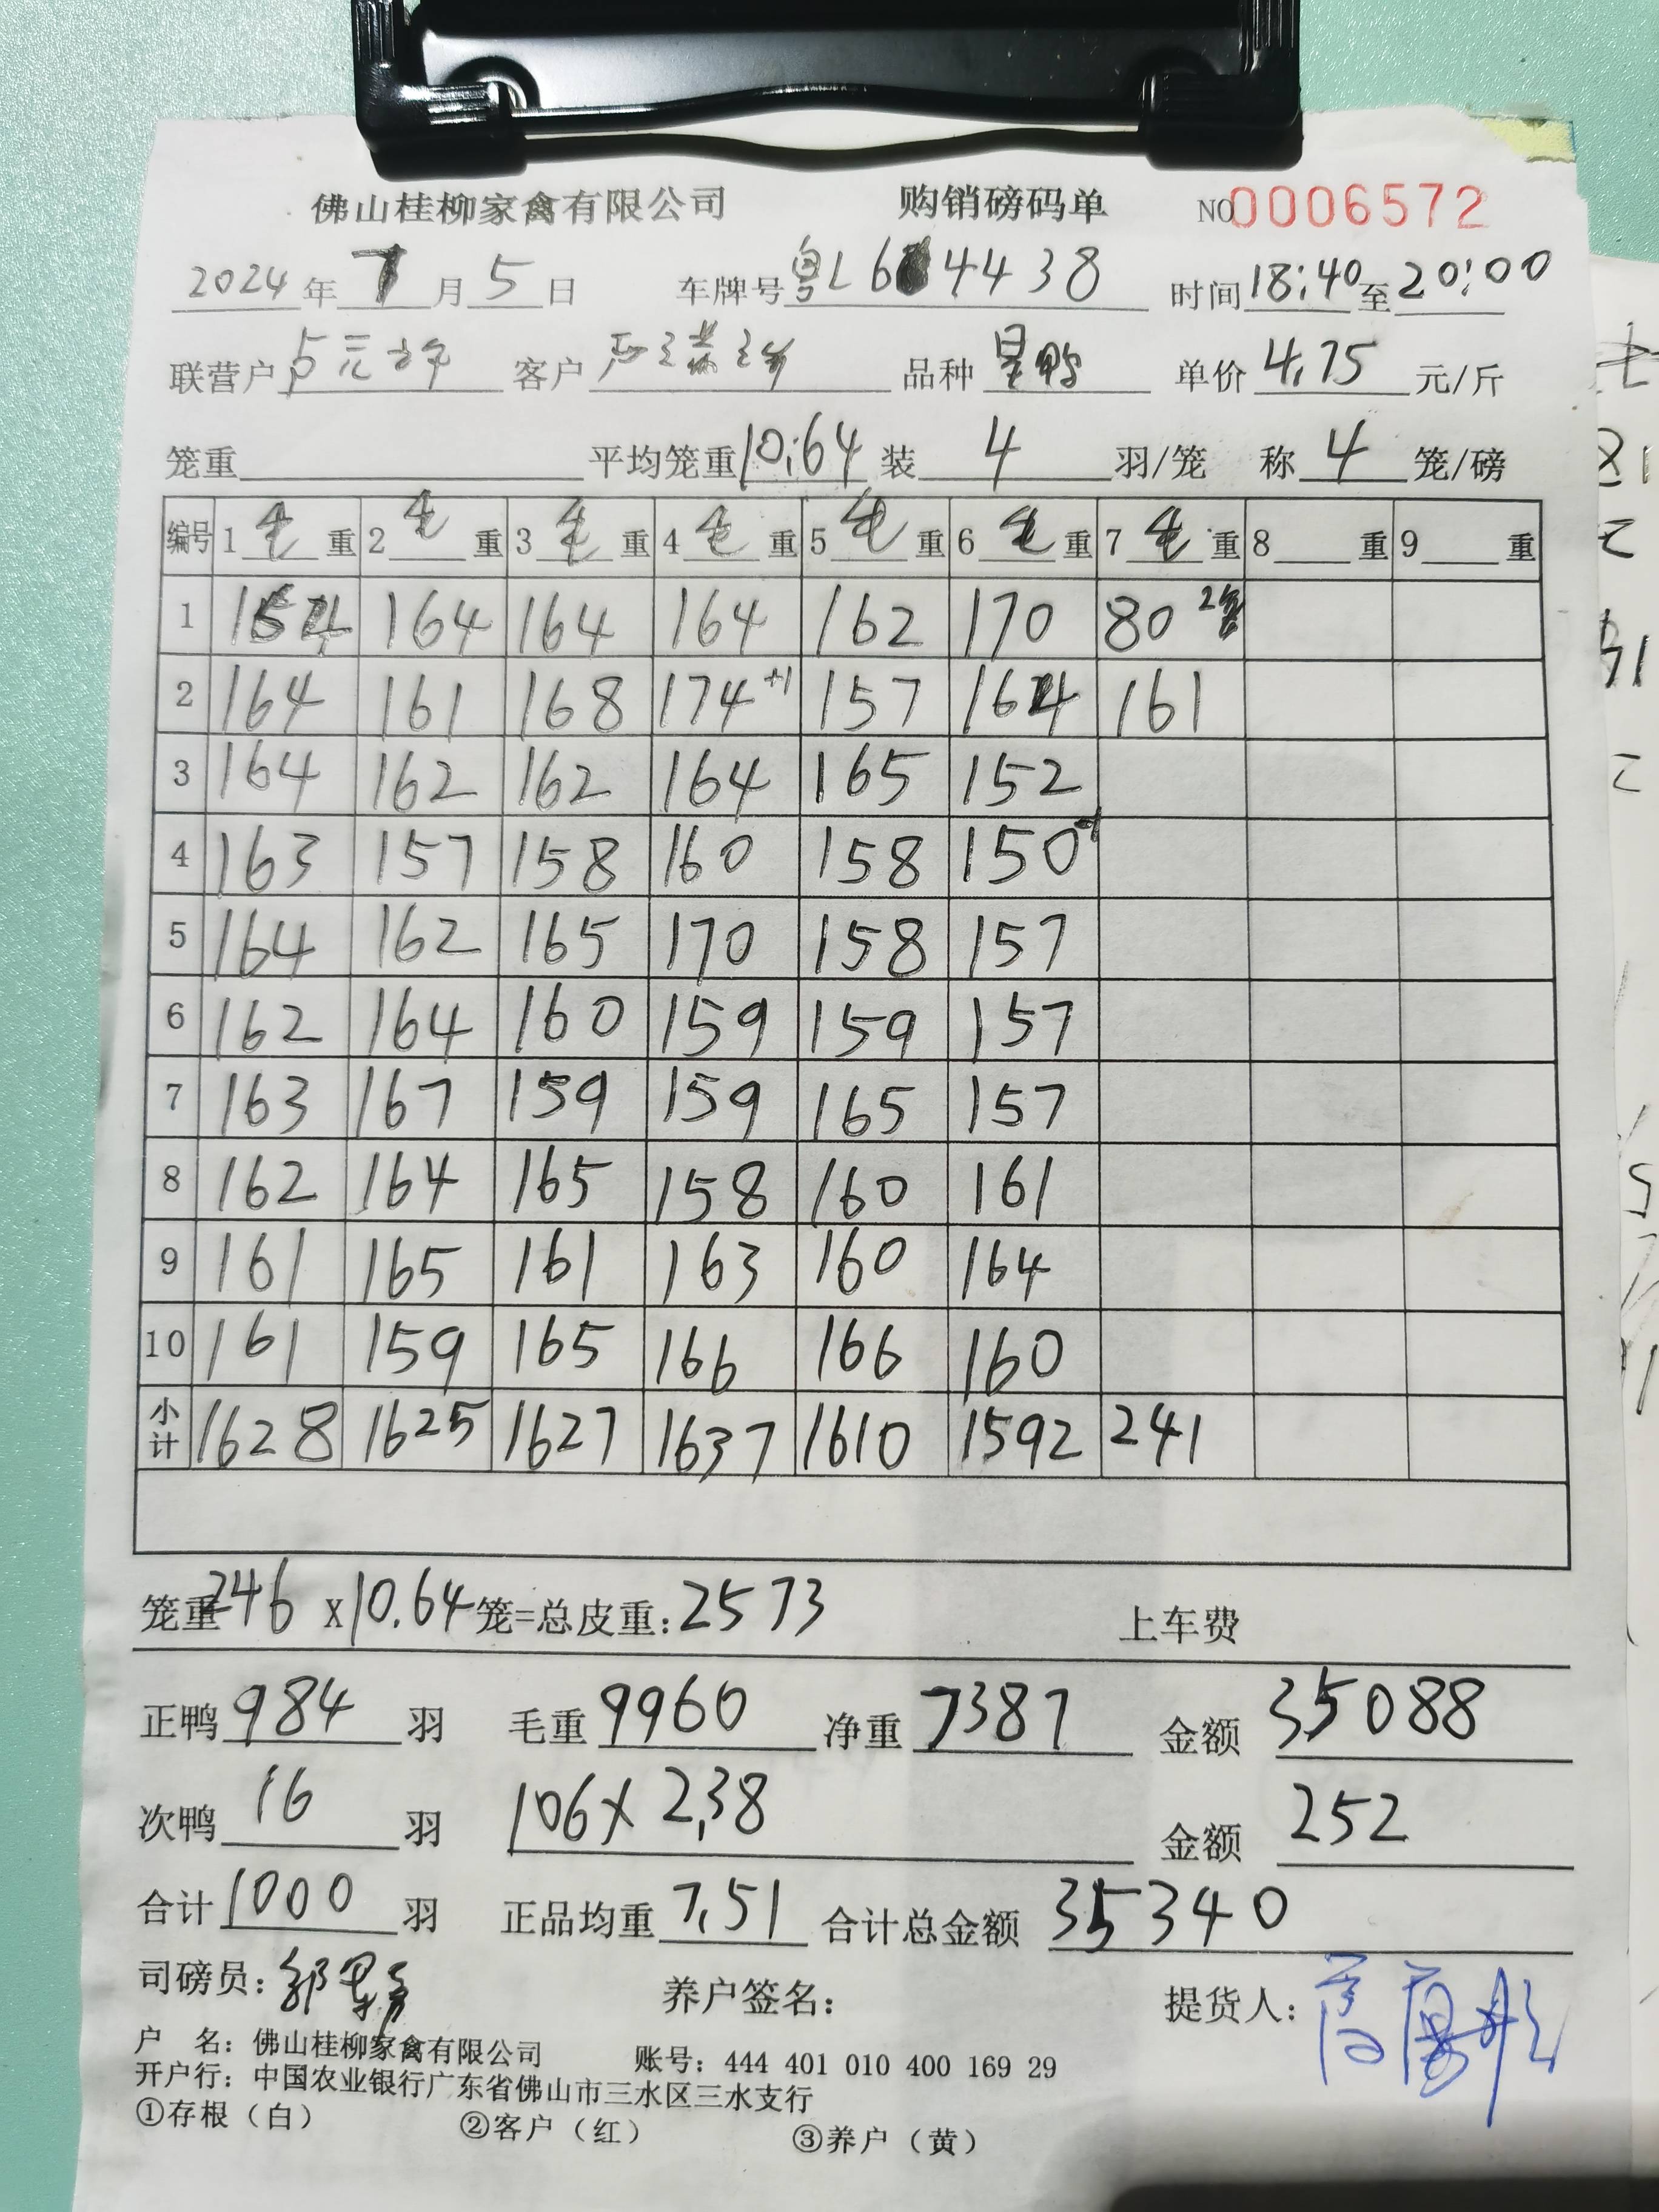 佛山桂柳家禽有限公司 购销磅码单 NO0006572
2024年7月5日 车牌号粤L64438 时间18:40至20:00
联营户 客户 品种 单价4.75元/斤
笼重 平均笼重10.64 装4羽/笼 称4笼/磅
编号 1毛重 2毛重 3毛重 4毛重 5毛重 6毛重 7毛重 8重 9重
1 164 164 164 162 170 80
2 164 161 168 174+1 157 164 161
3 164 162 162 164 165 152
4 163 157 158 160 158 150
5 164 162 165 170 158 157
6 162 164 160 159 159 157
7 163 167 159 159 165 157
8 162 164 165 158 160 161
9 161 165 161 163 160 164
10 161 159 165 166 166 160
小计 1628 1625 1627 1637 1610 1592 241
笼重246x10.64笼=总皮重:2573 上车费
正鸭984羽 毛重9960 净重7387 金额35088
次鸭16羽 106x2.38 金额252
合计1000羽 正品均重7.51 合计总金额35340
司磅员: 养户签名: 提货人:
户 名: 佛山桂柳家禽有限公司 账号: 444 401 010 400 169 29
开户行: 中国农业银行广东省佛山市三水区三水支行
①存根（白） ②客户（红） ③养户（黄）